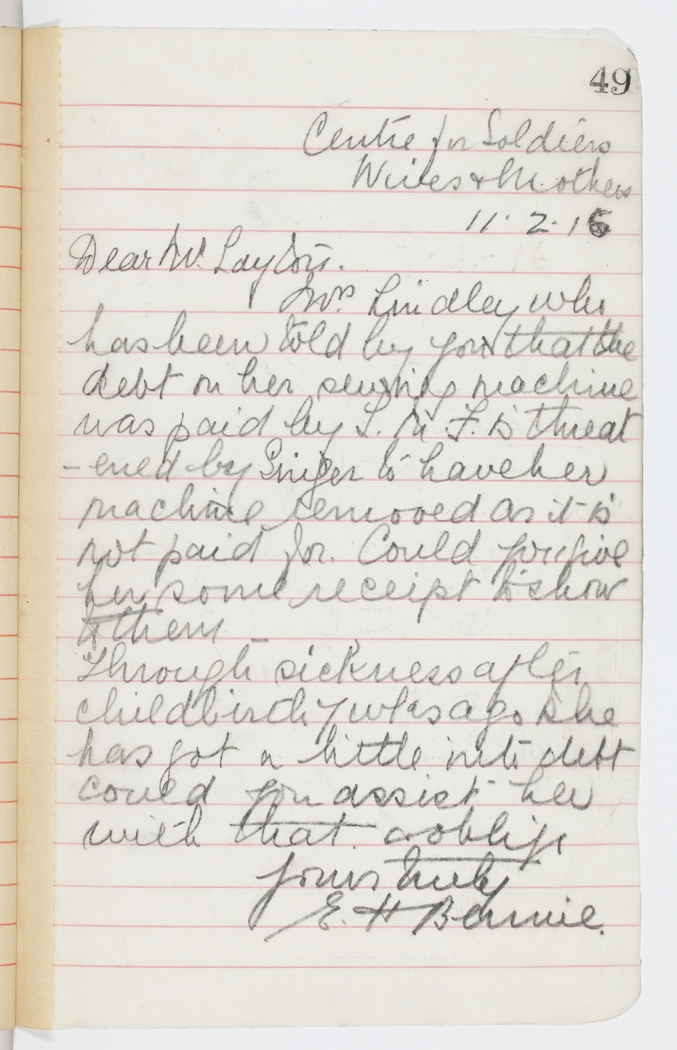 49
Centre for Soldiers
Wives & Mothers
11.2.16
Dear Mr. Laytons.
Mrs Lindley who
has been told by you that the
debt on her sewing machine
was paid by L. M. F. is threat
-ened by Singer to have her
machine removed as it is
not paid for. Could you give
her some receipt to show
to them
Through sickness after
childbirth 7 wks ago she
has got a little into debt
could you assist her
with that. & oblige
Yours truly
E. H